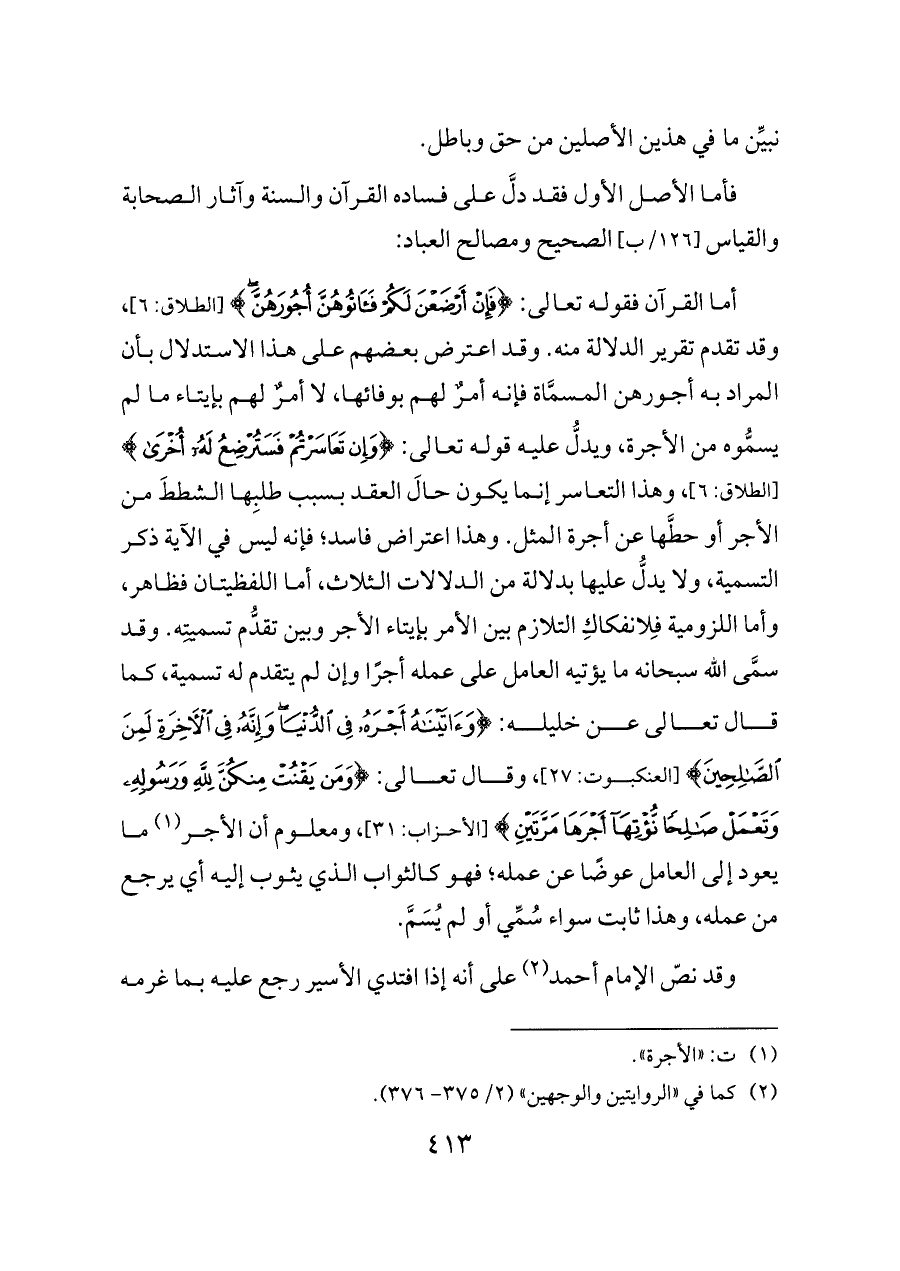 نبيِّن ما في هذين الأصلين من حق وباطل.
فأما الأصل الأول فقد دلَّ على فساده القرآن والسنة وآثار الصحابة
والقياس [١٢٦/ ب] الصحيح ومصالح العباد:
أما القرآن فقوله تعالى: ﴿فَإِنْ أَرْضَعْنَ لَكُمْ فَـَٔاتُوهُنَّ أُجُورَهُنَّ ۖ﴾ [الطلاق: ٦]،
وقد تقدم تقرير الدلالة منه. وقد اعترض بعضهم على هذا الاستدلال بأن
المراد به أجورهن المسمَّاة فإنه أمرٌ لهم بوفائها، لا أمرٌ لهم بإيتاء ما لم
يسمُّوه من الأجرة، ويدلُّ عليه قوله تعالى: ﴿وَإِن تَعَاسَرْتُمْ فَسَتُرْضِعُ لَهُۥٓ أُخْرَىٰ﴾
[الطلاق: ٦]، وهذا التعاسر إنما يكون حالَ العقد بسبب طلبِها الشططَ من
الأجر أو حطَّها عن أجرة المثل. وهذا اعتراض فاسد؛ فإنه ليس في الآية ذكر
التسمية، ولا يدلُّ عليها بدلالة من الدلالات الثلاث، أما اللفظيتان فظاهر،
وأما اللزومية فِلانفكاكِ التلازم بين الأمر بإيتاء الأجر وبين تقدُّم تسميتِه. وقد
سمَّى الله سبحانه ما يؤتيه العامل على عمله أجرًا وإن لم يتقدم له تسمية، كما
قال تعالى عن خليله: ﴿وَءَاتَيْنَٰهُ أَجْرَهُۥ فِى ٱلدُّنْيَا ۖ وَإِنَّهُۥ فِى ٱلْأَخِرَةِ لَمِنَ
ٱلصَّٰلِحِينَ﴾ [العنكبوت: ٢٧]، وقال تعالى: ﴿وَمَن يَقْنُتْ مِنكُنَّ لِلَّهِ وَرَسُولِهِۦ
وَتَعْمَلْ صَٰلِحًا نُّؤْتِهَآ أَجْرَهَا مَرَّتَيْنِ﴾ [الأحزاب: ٣١]، ومعلوم أن الأجر(١) ما
يعود إلى العامل عوضًا عن عمله؛ فهو كالثواب الذي يثوب إليه أي يرجع
من عمله، وهذا ثابت سواء سُمِّي أو لم يُسَمَّ.
وقد نصّ الإمام أحمد(٢) على أنه إذا افتدي الأسير رجع عليه بما غرمه
(١) ت: «الأجرة».
(٢) كما في «الروايتين والوجهين» (٢/ ٣٧٥- ٣٧٦).
٤١٣